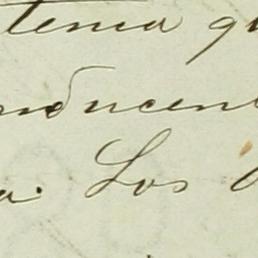 tenia qu
nducen
a. Los